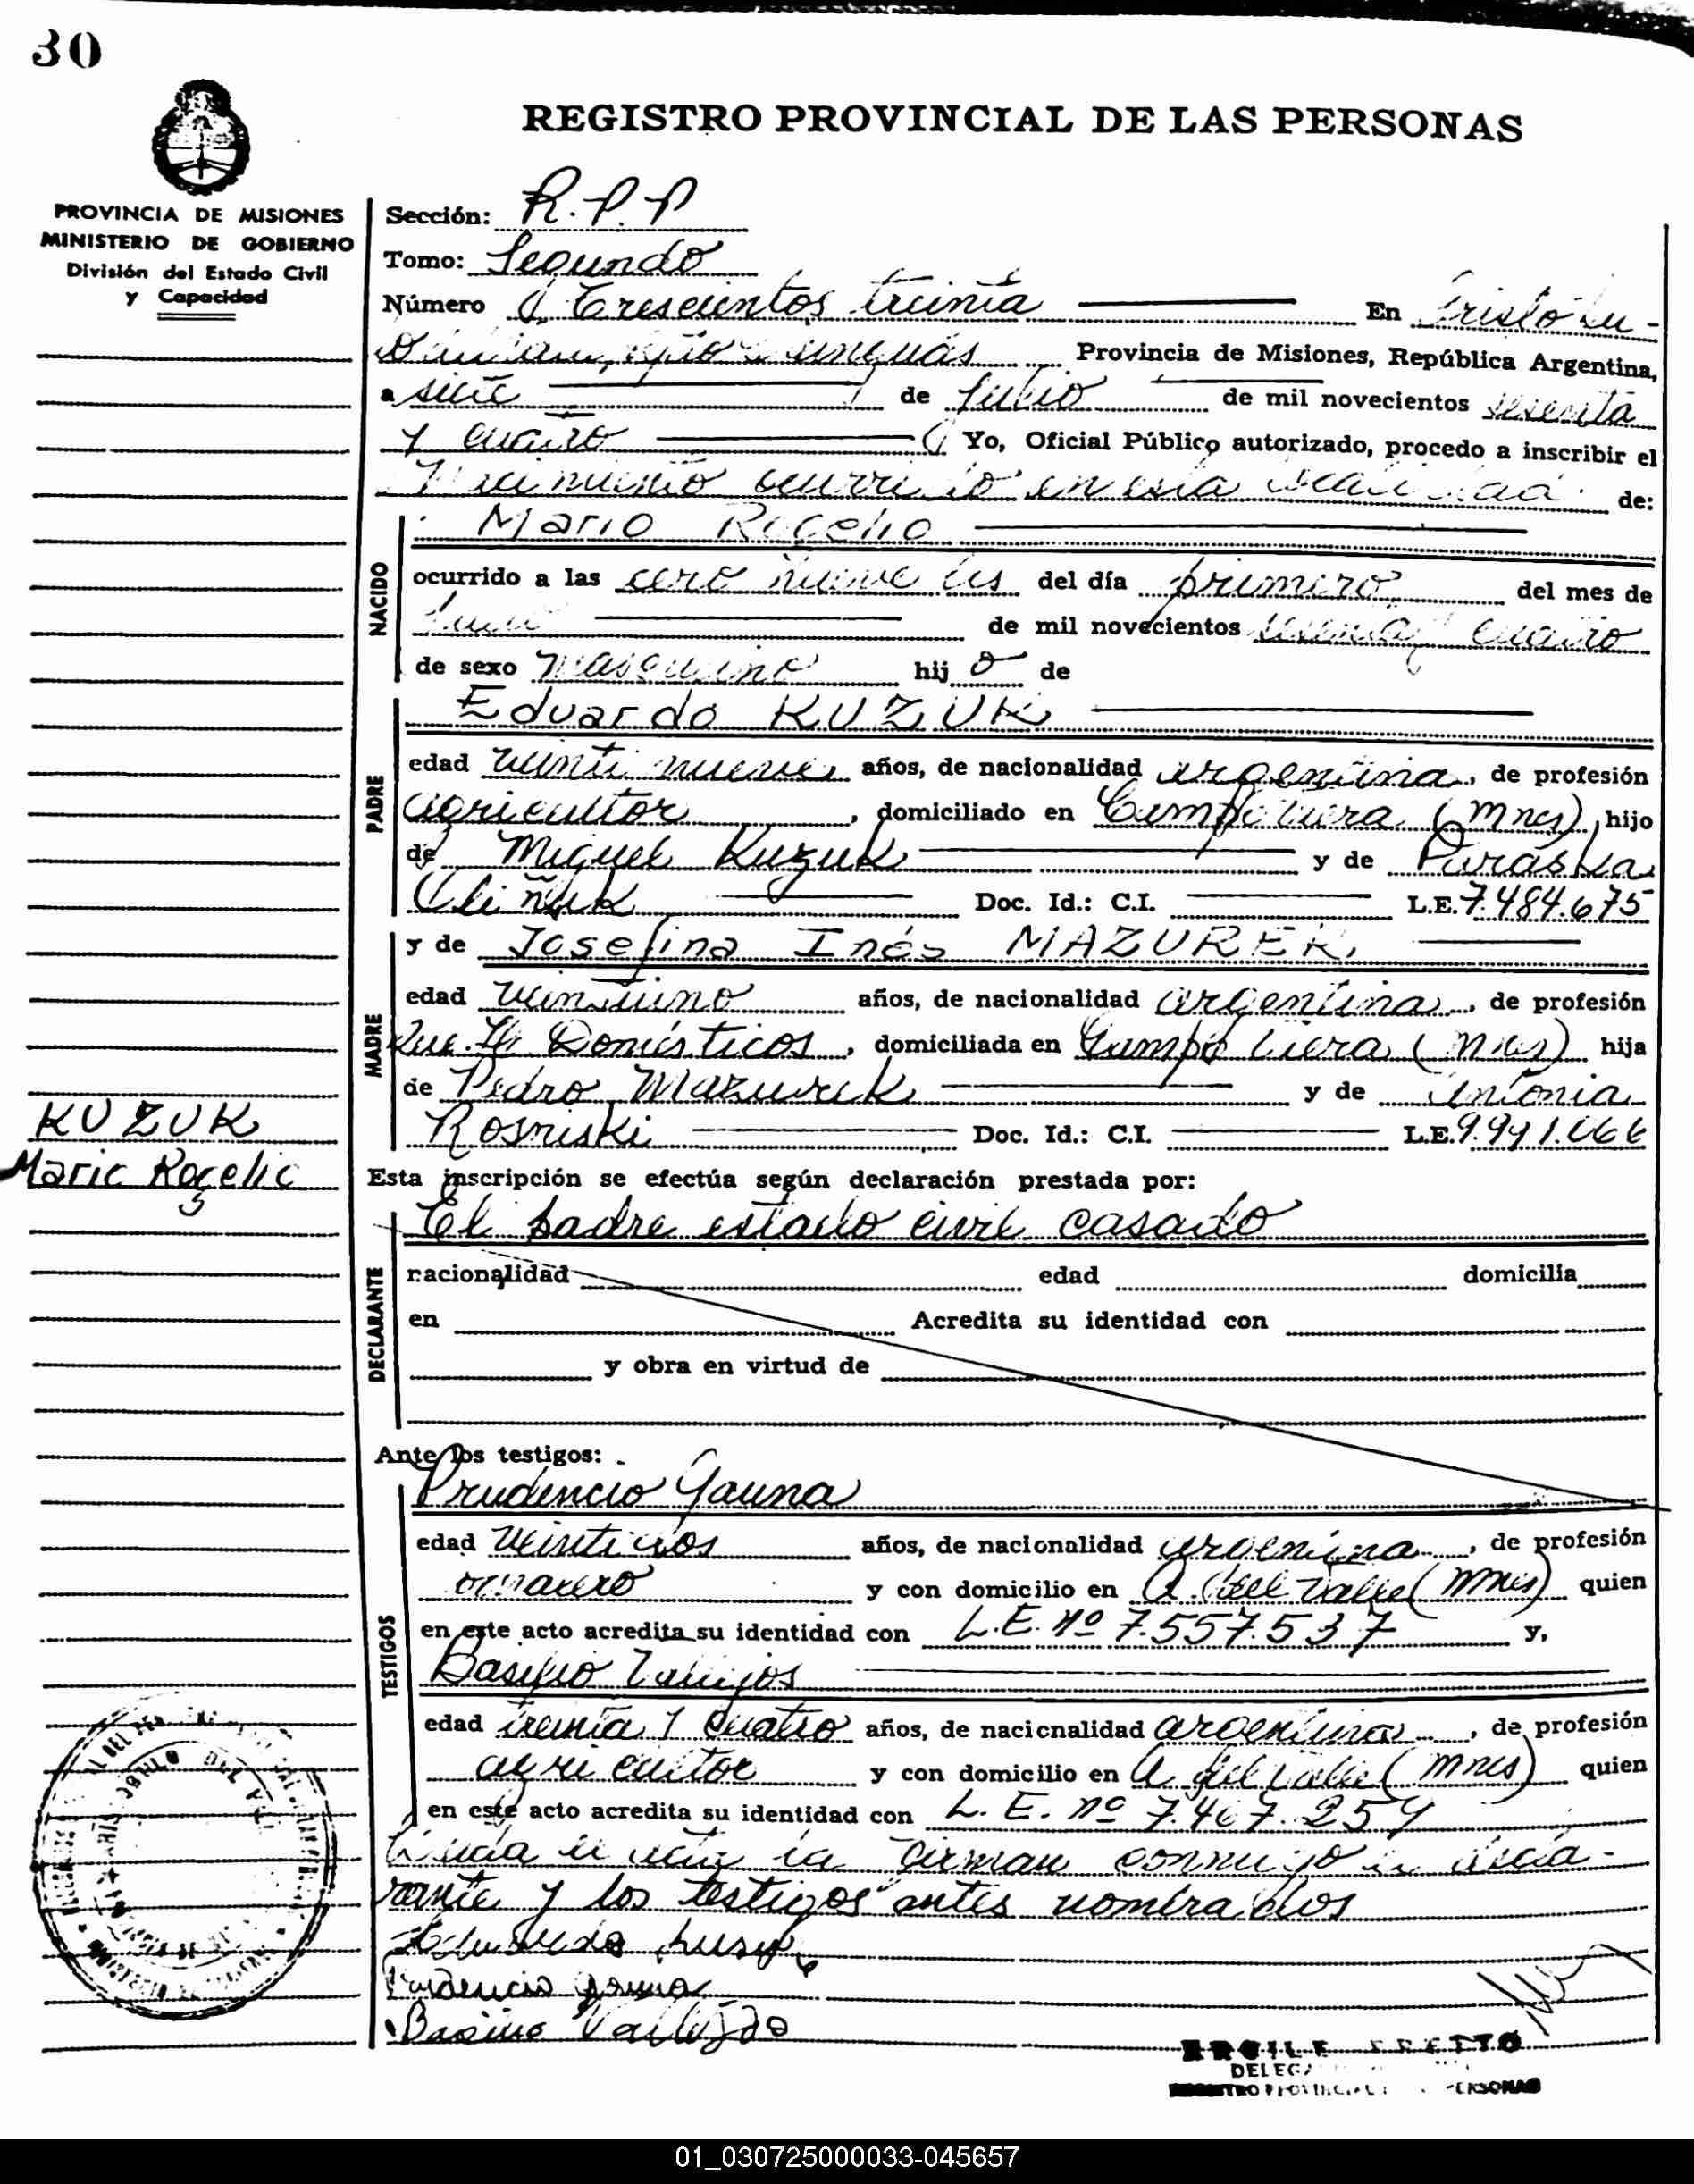 30
REGISTRO PROVINCIAL DE LAS PERSONAS
PROVINCIA DE MISIONES
MINISTERIO DE GOBIERNO
División del Estado Civil
y Capacidad
Sección: R.P.P
Tomo: Segundo
Número Trescientos treinta En Cristo
Provincia de Misiones, República Argentina,
a siete de Julio de mil novecientos sesenta
y cuatro Yo, Oficial Público autorizado, procedo a inscribir el
Nacimiento ocurrido en esta localidad de:
Mario Rogelio
NACIDO
ocurrido a las cero nueve hs del día primero del mes de
de mil novecientos sesenta y cuatro
de sexo masculino hijo de
Eduardo KUZUK
PADRE
edad veinti nueve años, de nacionalidad argentina, de profesión
agricultor, domiciliado en Campo Viera (Mnes), hijo
de Miguel Kuzuk y de Paraska
Oliñuk Doc. Id.: C.I. L.E. 7.484.675
y de Josefina Inés MAZUREK,
MADRE
edad veintiuno años, de nacionalidad argentina, de profesión
Que. H. Domésticos, domiciliada en Campo Viera (Mnes) hija
de Pedro Mazurek y de Antonia
Doc. Id.: C.I. L.E. 9.991.066
KUZUK
Mario Rogelio
Esta inscripción se efectúa según declaración prestada por:
El padre estado civil casado
DECLARANTE
nacionalidad edad domicilia
en Acredita su identidad con
y obra en virtud de
Ante los testigos:
Prudencio Gauna
TESTIGOS
edad veinti dos años, de nacionalidad argentina, de profesión
y con domicilio en A. del Valle (Mnes) quien
en este acto acredita su identidad con L.E. nº 7.557.537 y,
Basilio Vallejos
edad treinta y cuatro años, de nacionalidad argentina, de profesión
agricultor y con domicilio en A. del Valle (Mnes) quien
en este acto acredita su identidad con L.E. nº 7.467.259
Leida el acta la firman conmigo el decla-
rante y los testigos antes nombrados
Eduardo
Prudencio Gauna
Basilio Vallejos
DELEGA
PERSONAS
01_030725000033-045657